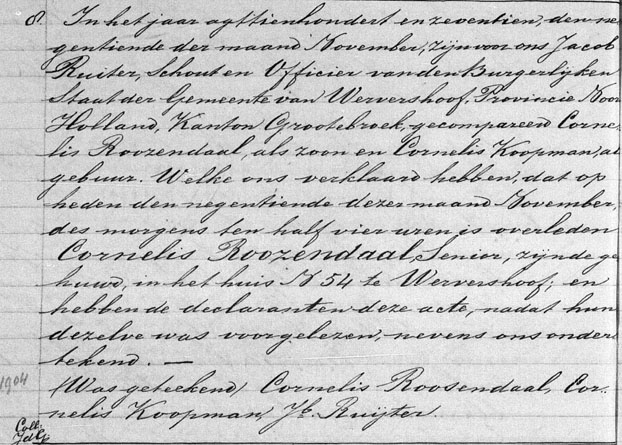 8. In het jaar agttienhondert en zeventien, den ne
gentiende der maand November, zijn voor ons Jacob
Ruiter, Schout en Officier van den Burgerlijken
Staat der Gemeente van Wervershoof, Provincie Noor
Holland, Kanton Grootebroek, gecompareerd Corne,
lis Roozendaal, als zoon en Cornelis Koopman, al
gebuur. Welke ons verklaard hebben, dat op
heden den negentiende dezer maand November,
des morgens ten half vier uren is overleden
Cornelis Roozendaal, Senior, zijnde ge
huwd, in het huis N 54 te Wervershoof; en
hebben de declaranten deze acte, nadat hun
dezelve was voorgelezen, nevens ons onder
tekend. —
1904
(Was geteekend) Cornelis Roosendaal, Cor-
nelis Koopman, Jb. Ruijter.
Coll: